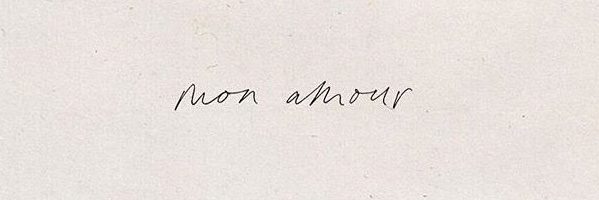 mon amour